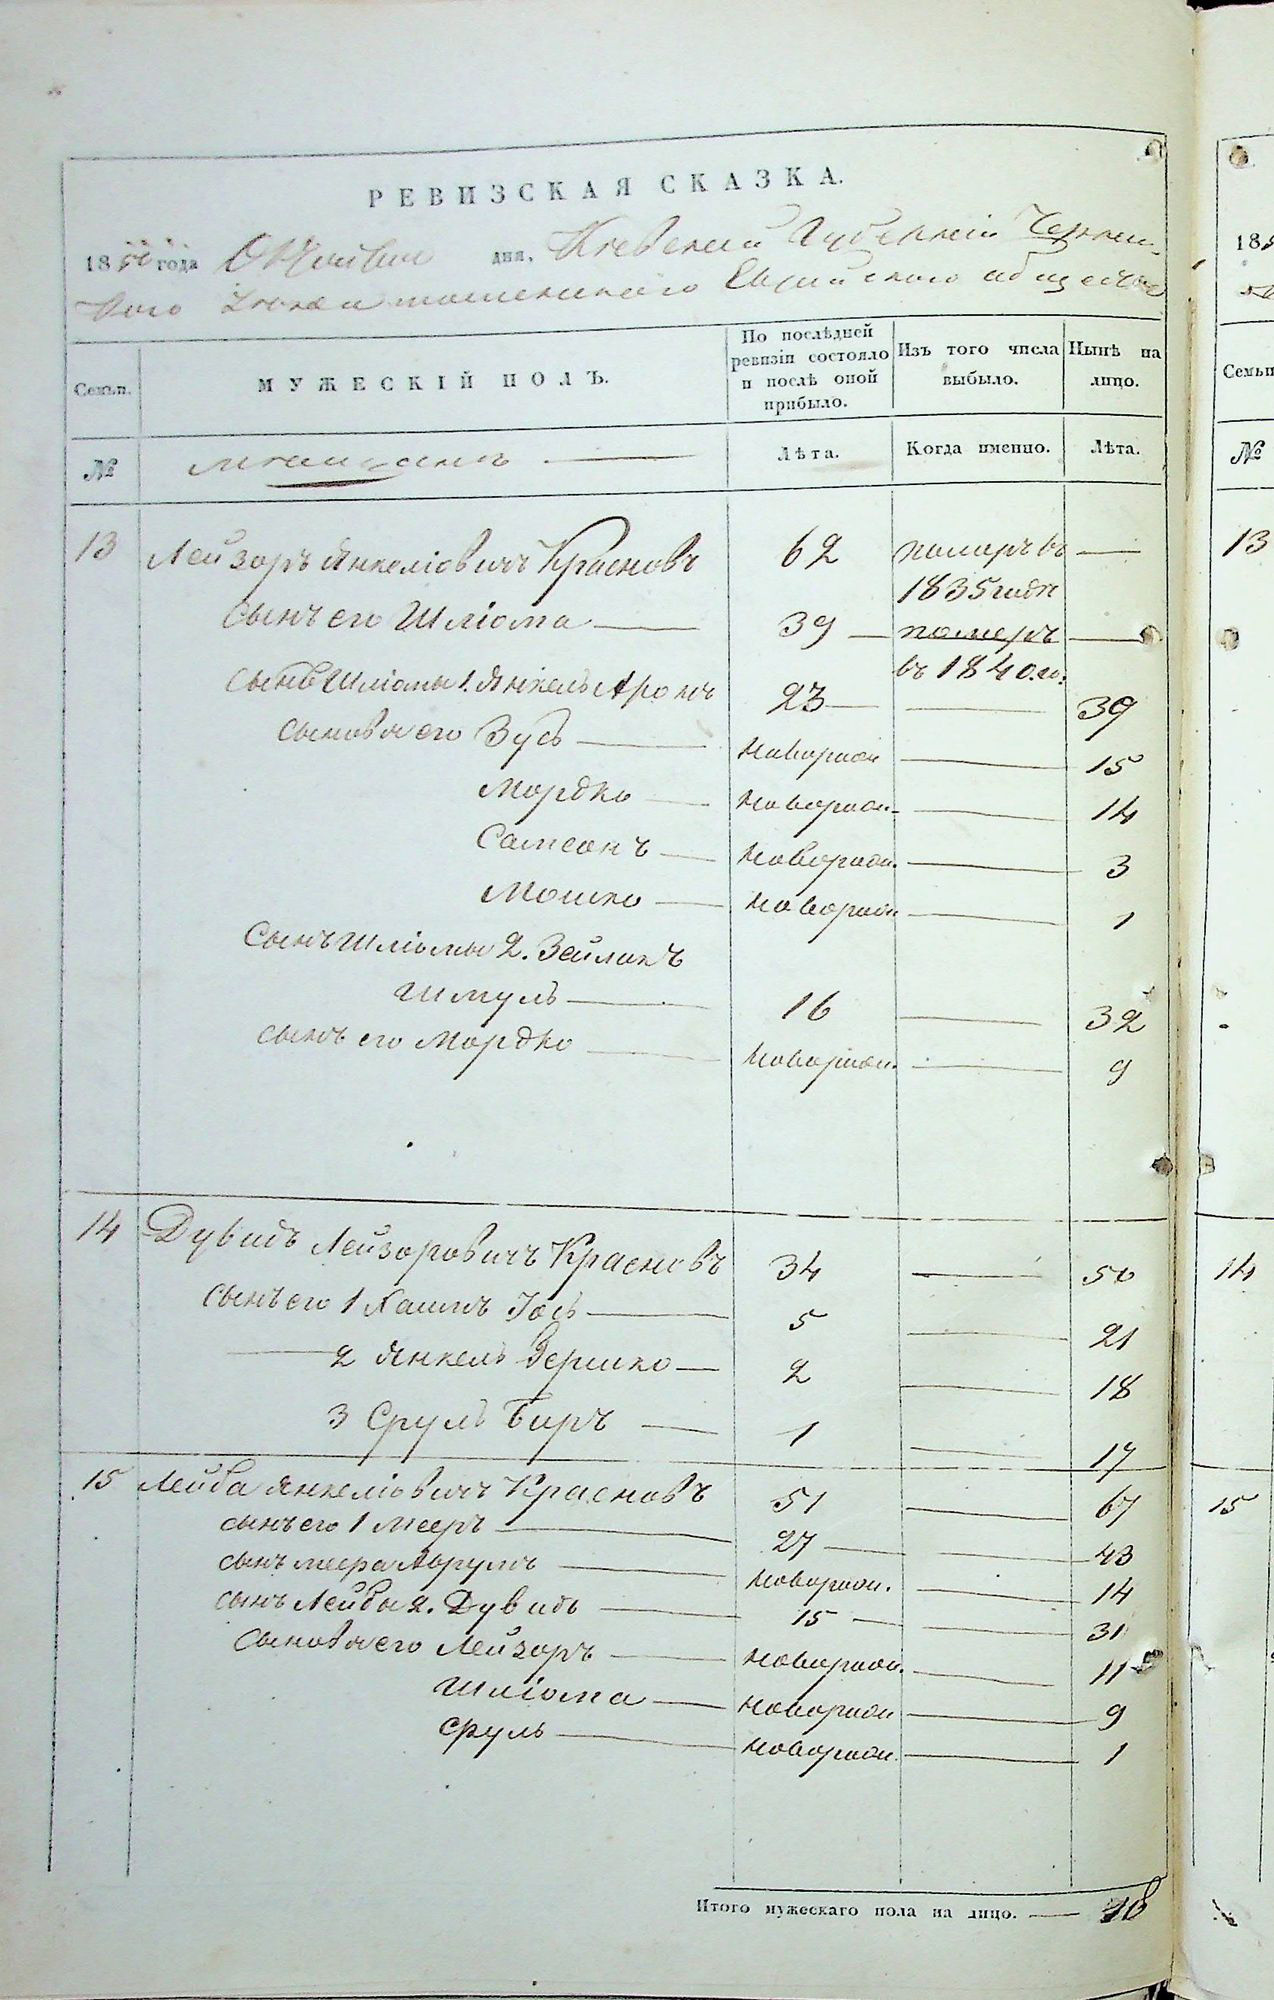 РЕВИЗСКАЯ СКАЗКА.
1850 года Октября дня, Киевской Губернии
Еврейского общества
Семьи. МУЖЕСКІЙ ПОЛЪ. По послѣдней ревизіи состояло и послѣ оной прибыло. Изъ того числа выбыло. Нынѣ на лицо.
№ Лѣта. Когда именно. Лѣта.
13 Лейзоръ Янкеліовичъ Красновъ 62 померъ въ —
1835 годѣ
сынъ его Шліома — 39 — померъ —
въ 1840 го.
сынъ Шліомы 1. Янкель Аронъ 23 — — 39
сыновья его Зусь — новорожд — 15
Мордко — новорожд. — 14
Самсонъ — новорожд. — 3
Мошко — новорожд — 1
Сынъ Шліомы 2. Зейликъ
Шмуль — 16 — 32
сынъ его Мордко — новорожд. — 9
14 Дувидъ Лейзоровичъ Красновъ 34 — 50
сынъ его 1 Хаимъ Іось — 5 — 21
— 2 Янкель Гершко — 2 — 18
3 Сруль Беръ — 1 — 17
15 Лейба Янкеліовичъ Красновъ 51 — 67
сынъ его 1 Мееръ — 27 — — 43
сынъ Меера Аврумъ — новорожд. — 14
сынъ Лейбы 2. Дувидъ — 15 — — 31
сыновья его Лейзоръ — новорожд. — 11
Шліома — новорожд — 9
Сруль — новорожд. — 1
Итого мужескаго пола на лицо. — 18
185
Семьи
№
13
14
15